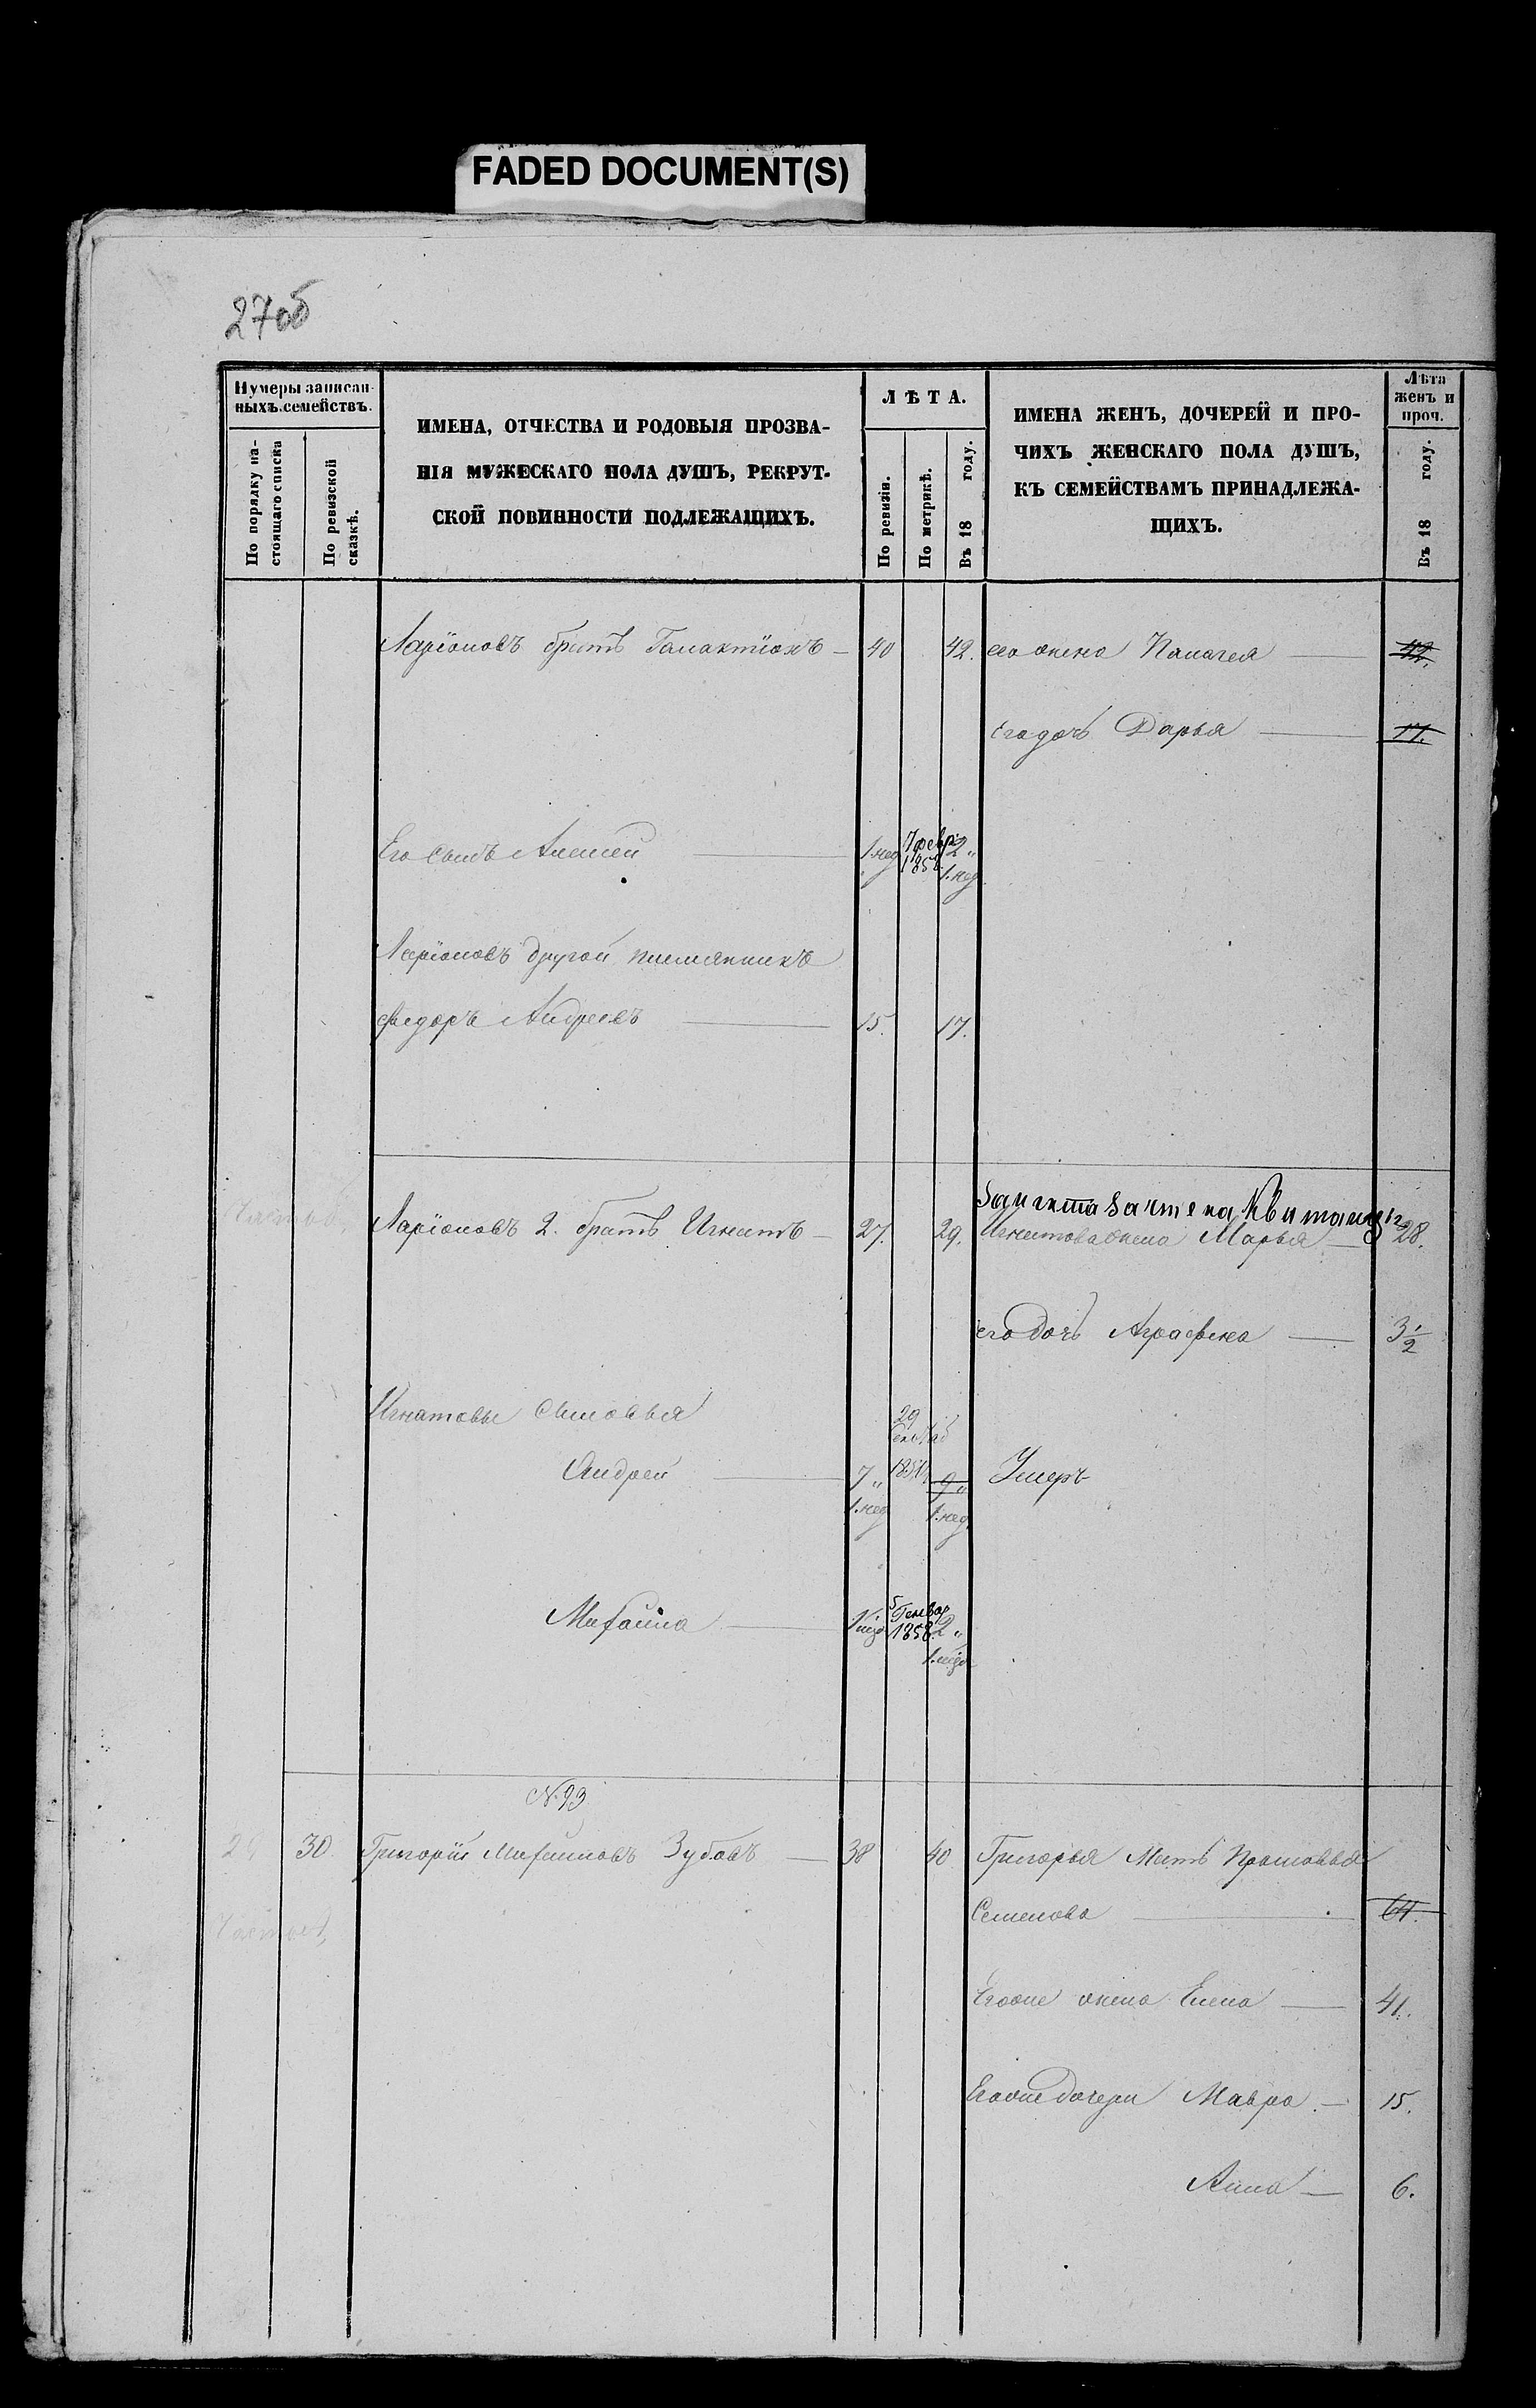 FADED DOCUMENT(S)
27об
Нумеры записан-
ныхъ семействъ.
По порядку на-
стоящаго списка
По ревизской
сказкѣ.
ИМЕНА, ОТЧЕСТВА И РОДОВЫЯ ПРОЗВА-
НІЯ МУЖЕСКАГО ПОЛА ДУШЪ, РЕКРУТ-
СКОЙ ПОВИННОСТИ ПОДЛЕЖАЩИХЪ.
ЛѢТА.
По ревизіи.
По метрикѣ.
Въ 18 году.
ИМЕНА ЖЕНЪ, ДОЧЕРЕЙ И ПРО-
ЧИХЪ ЖЕНСКАГО ПОЛА ДУШЪ,
КЪ СЕМЕЙСТВАМЪ ПРИНАДЛЕЖА-
ЩИХЪ.
Лѣта
женъ и
проч.
Въ 18 году.
Ларіоновъ братъ Галактіонъ — 40 42. его жена Палагея — 42.
его дочь Дарья — 17.
Его сынъ Алексей — 1.нед 7 февр. 1858 2 „ 1.нед.
Ларіоновъ другой племянникъ
Федоръ Андреевъ — 15. 17.
зачтена квитанція
Ларіоновъ 2. братъ Игнатъ — 27. 29. Игнатова жена Марья — 28.
его дочь Аграфена — 3 1/2
Игнатовы сыновья
Андрей — 7 „ 1.нед 29 1850 9 „ 1.нед. Умеръ
Михаила — 5 Генвар 1858 2 „
N. 93
30. Григорій Михайловъ Зубовъ — 38 40 Григорья мать Прасковья
Семенова — 64.
Егоже жена Елена — 41.
Егоже дочери Мавра — 15.
Анна — 6.